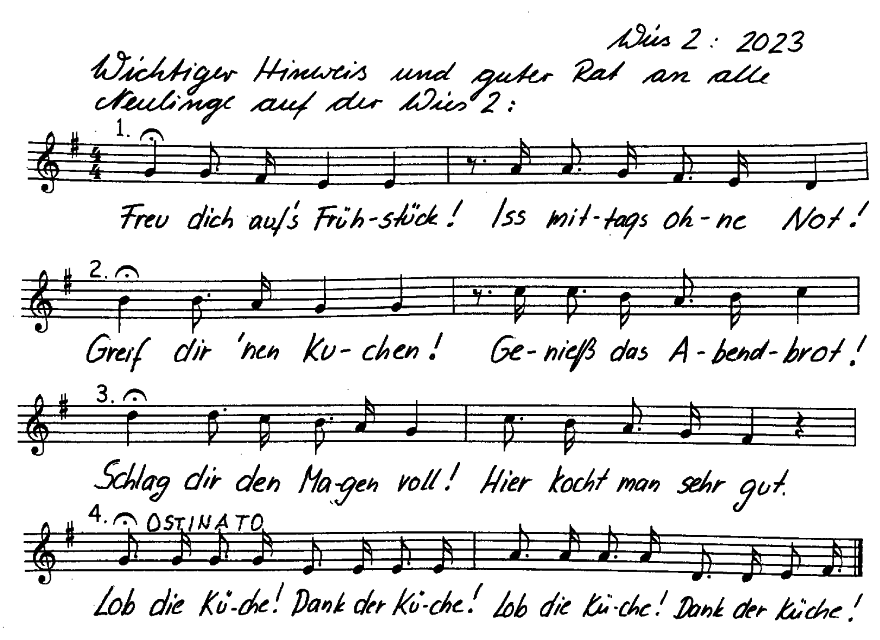 Wies 2: 2023
Wichtiger Hinweis und guter Rat an alle
Neulinge auf der Wies 2:
1.
4/4
Freu dich auf's Früh-stück! Iss mit-tags oh-ne Not!
2.
Greif dir 'nen Ku-chen! Ge-nieß das A-bend-brot!
3.
Schlag dir den Ma-gen voll! Hier kocht man sehr gut.
4. OSTINATO
Lob die Kü-che! Dank der Kü-che! Lob die Kü-che! Dank der Küche!